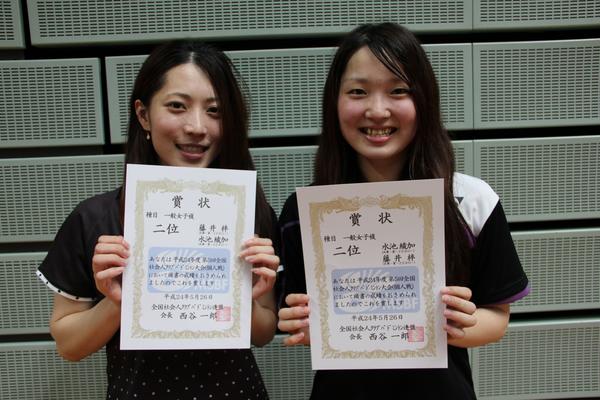 賞 状
種目 一般女子複
二位 藤井 梓
水池
あなたは平成24年度第5回全国
社会人クラブバドミントン大会(個人戦)
において頭書の成績をおさめられ
ましたのでこれを賞します
平成24年5月26日
全国社会人クラブバドミントン連盟
会長 西谷 一郎
賞 状
種目 一般女子複
二位 水池
藤井 梓
あなたは平成24年度第5回全国
社会人クラブバドミントン大会(個人戦)
において頭書の成績をおさめられ
ましたのでこれを賞します
平成24年5月26日
全国社会人クラブバドミントン連盟
会長 西谷 一郎